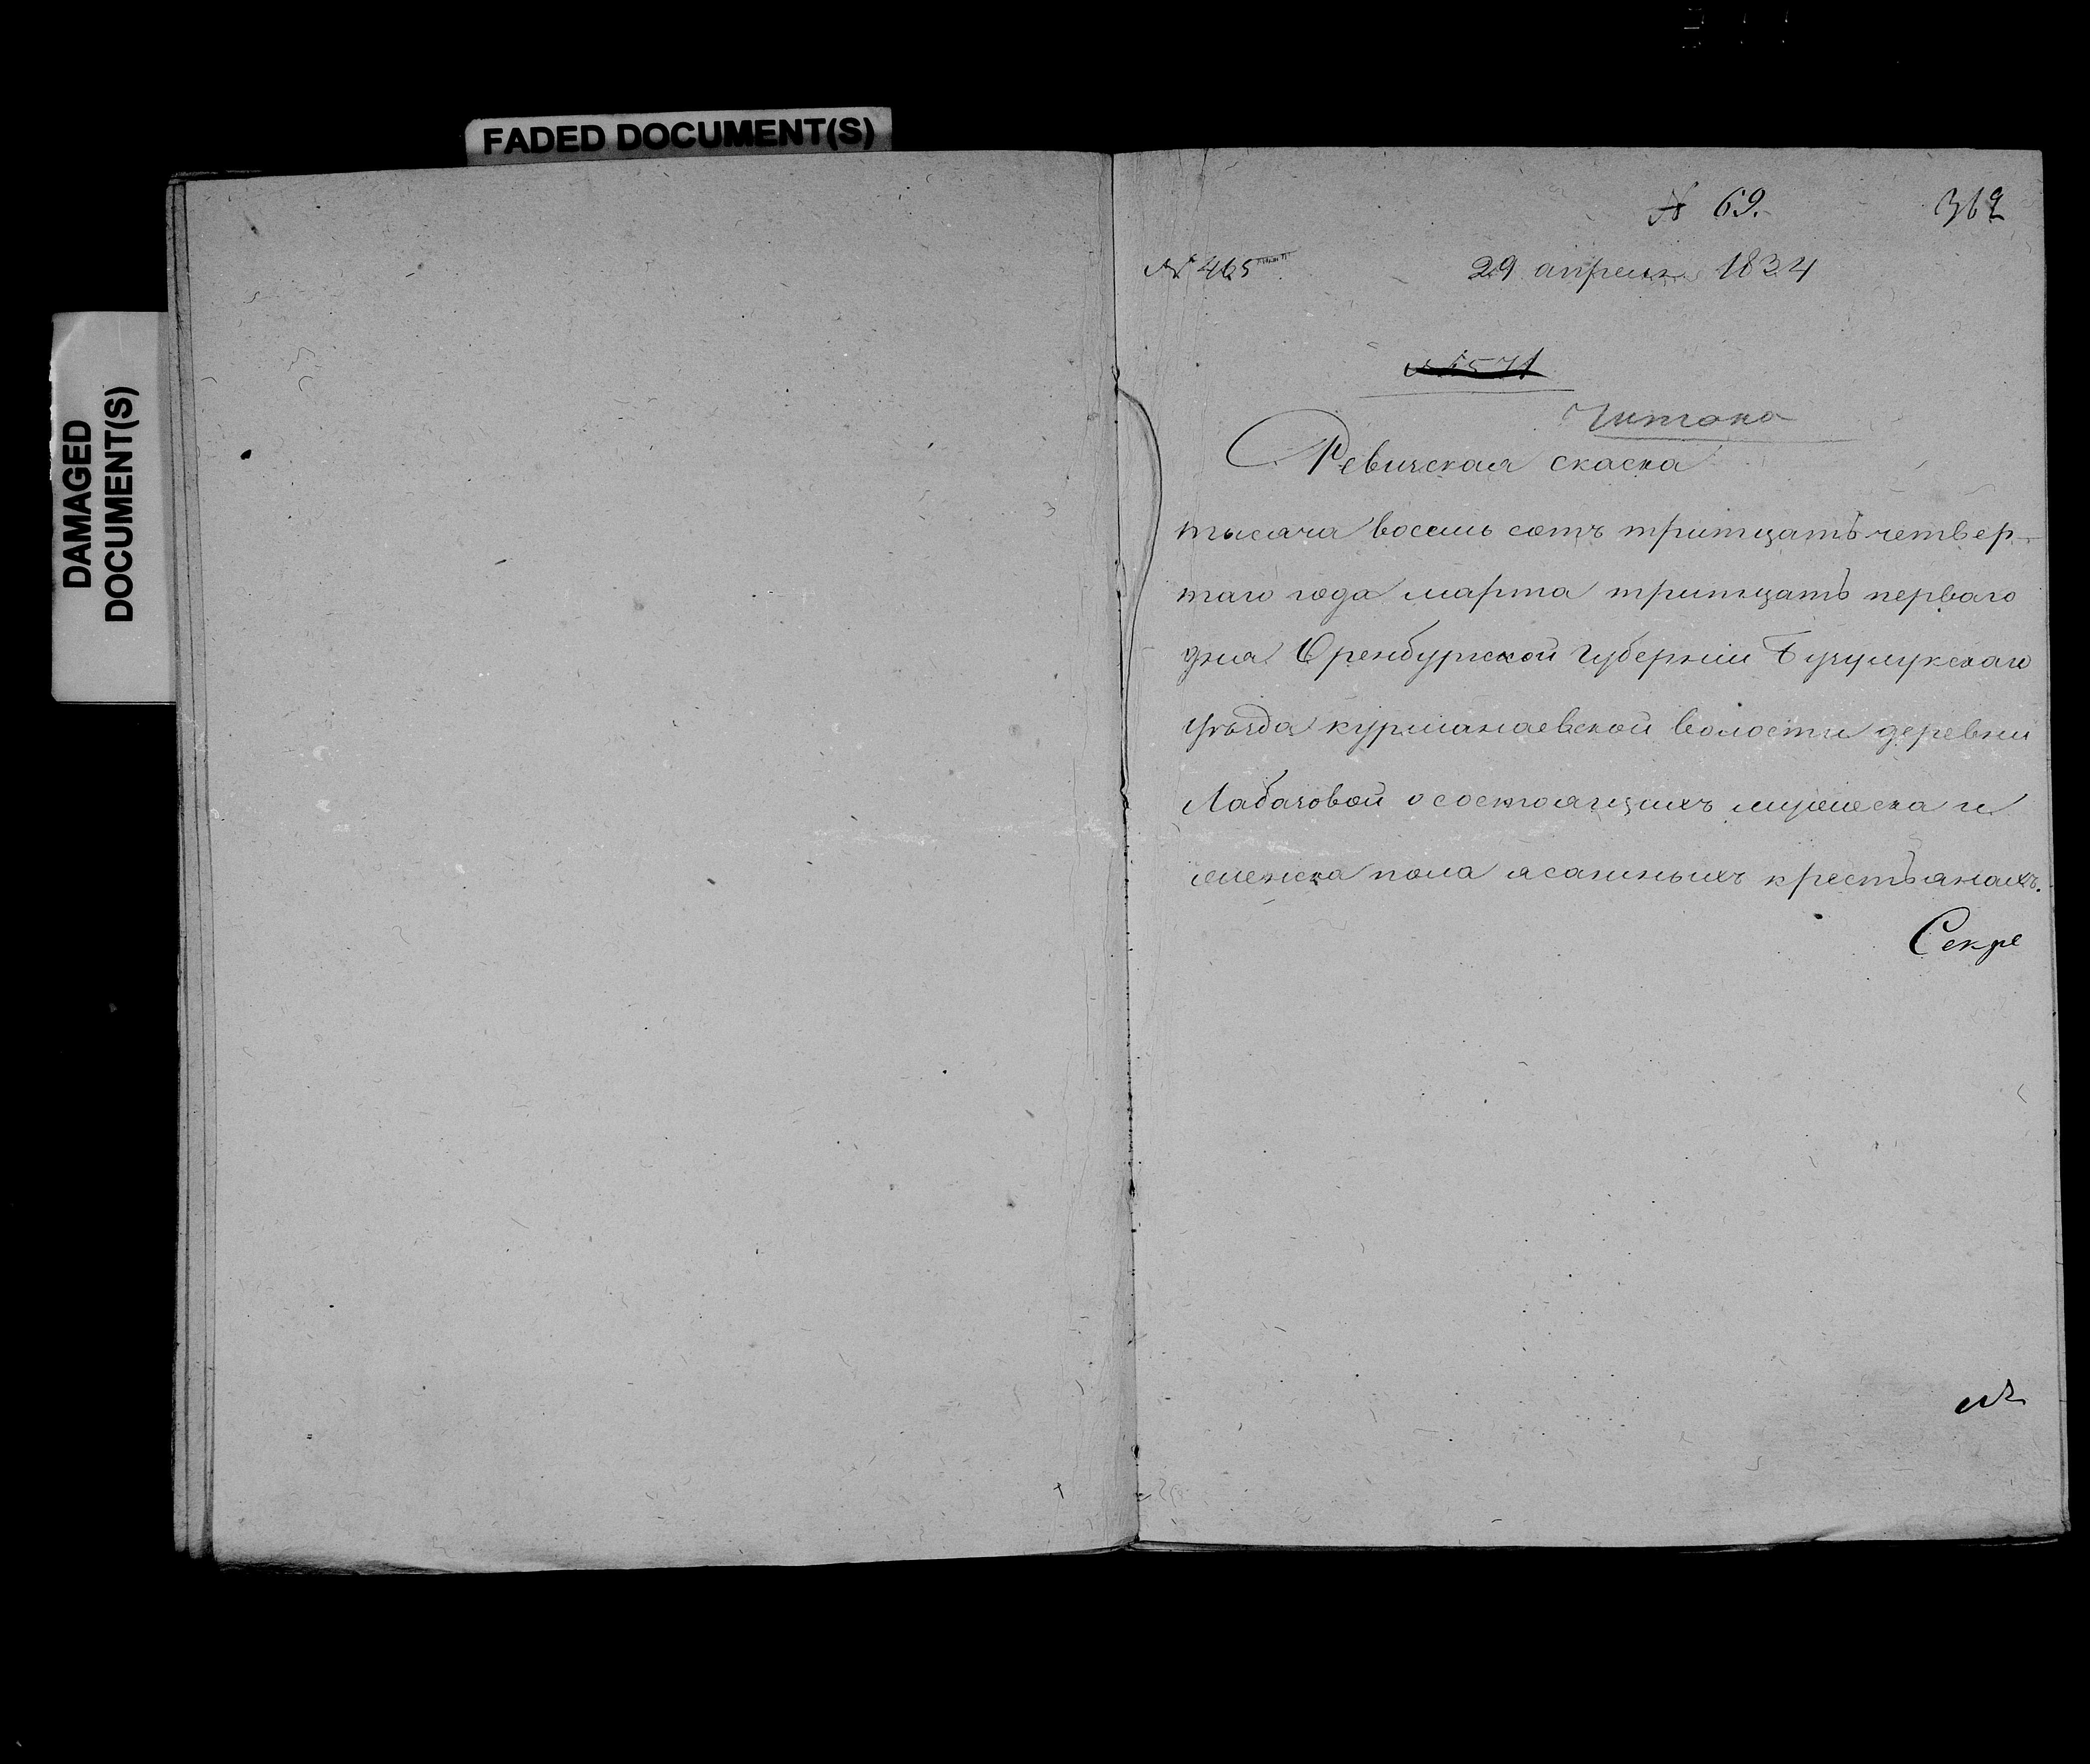 FADED DOCUMENT(S)
DAMAGED
DOCUMENT(S)
№ 69.
369
№ 465
29 апреля 1834
№ 571
Читана
Ревиская скаска
тысяча восемь сотъ тритцать четвер-
таго года марта тритцать перваго
дня Оренбургской губернии Бузулукскаго
уѣзда курманаевской волости деревни
Лабазовой о состоящихъ мужеска и
женска пола ясашныхъ крестьянахъ.
Секре